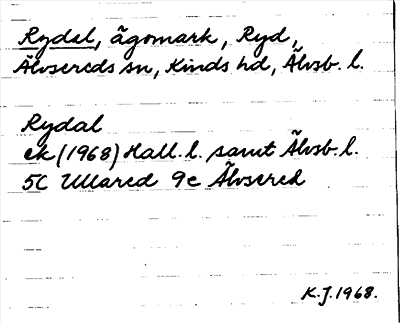 Rydal, ägomark, Ryd,
Älvsereds sn, Kinds hd, Älvsb. l.
Rydal
ek (1968) Hall. l. samt Älvsb. l.
5C Ullared 9e Älvsered
K.J. 1968.